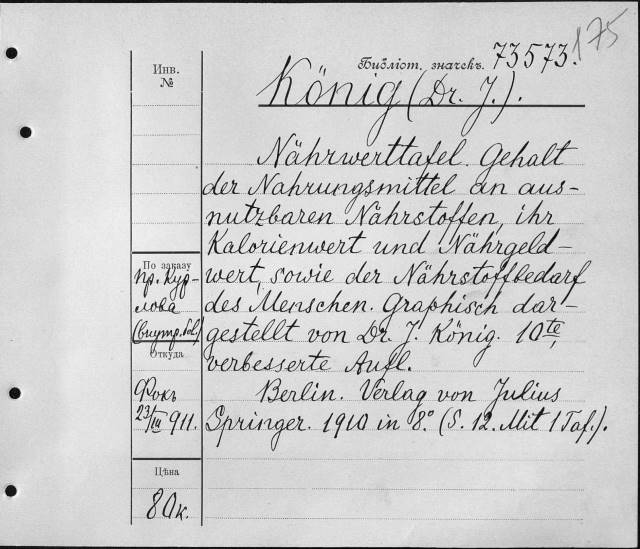 175
Библіот. значекъ. 73573.
Инв.
№
König (Dr. J.).
Nährwerttafel. Gehalt
der Nahrungsmittel an aus-
nutzbaren Nährstoffen, ihr
Kalorienwert und Nährgeld-
wert, sowie der Nährstoffbedarf
des Menschen. Graphisch dar-
gestellt von Dr. J. König. 10te,
verbesserte Aufl.
Berlin. Verlag von Julius
Springer. 1910 in 8.° (S. 12. Mit 1 Taf.).
По заказу
пр. Кур-
лова
(внутр. бол.)
Откуда
Фокъ
23/III 911.
Цѣна
80к.